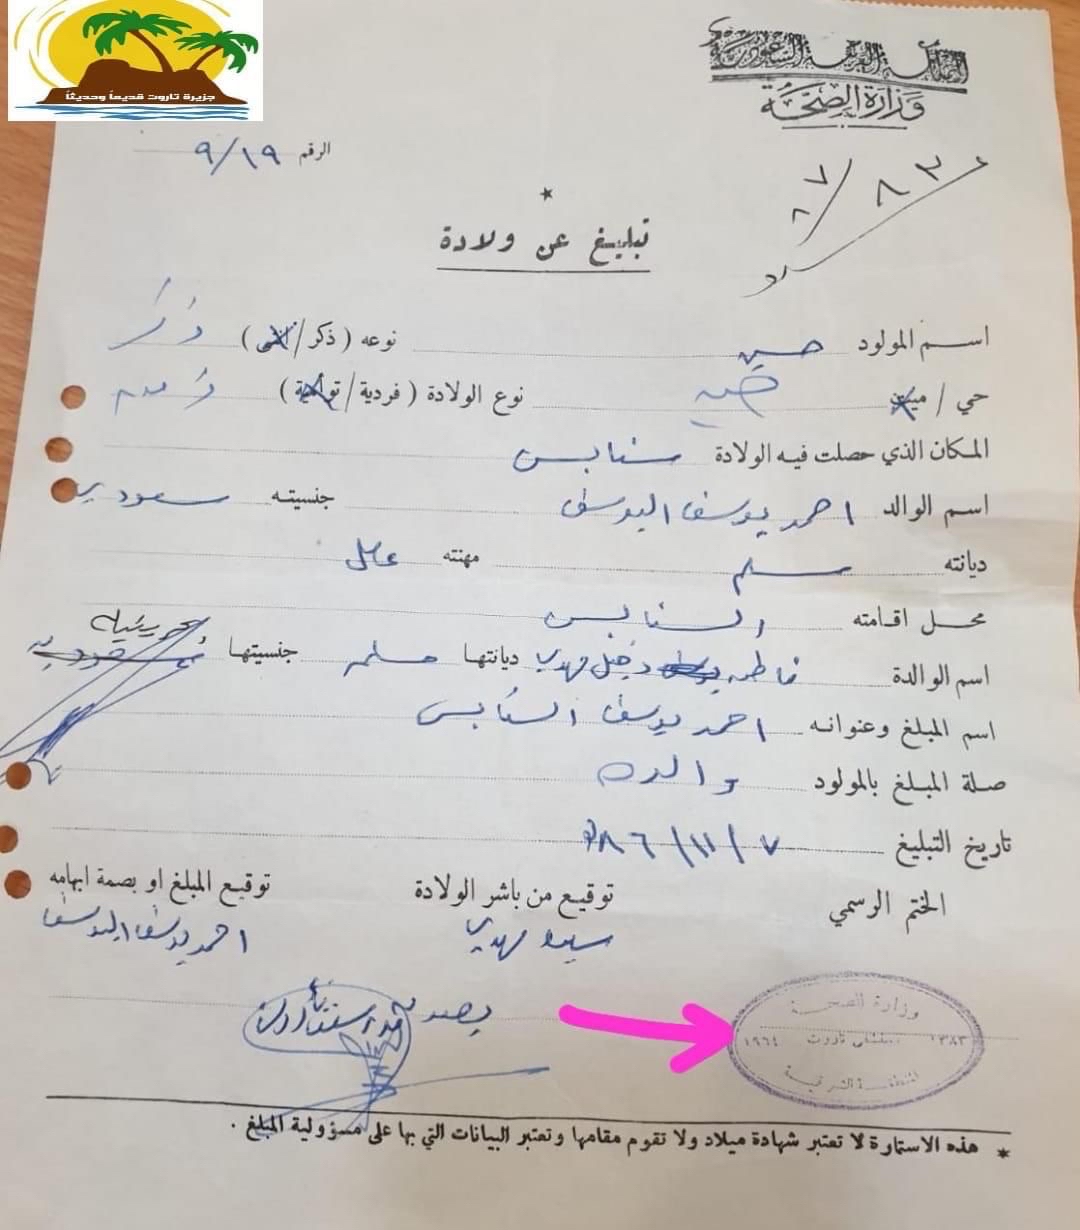 جزيرة تاروت قديماً وحديثاً
المملكة العربية السعودية
وزارة الصحة
الرقم ٩/١٩
٨٣
تبليغ عن ولادة
اسم المولود حسين نوعه ( ذكر / انثى ) ذكر
حي / ميت حي نوع الولادة ( فردية / توأمية )
المكان الذي حصلت فيه الولادة سنابس
اسم الوالد احمد يوسف اليوسف جنسيته سعودي
ديانته مسلم مهنته عامل
محل اقامته السنابس
اسم الوالدة فاطمه مهدي ديانتها مسلمه جنسيتها
اسم المبلغ وعنوانه احمد يوسف السنابس
صلة المبلغ بالمولود والده
تاريخ التبليغ ٧/١١/٨٦
الختم الرسمي توقيع من باشر الولادة توقيع المبلغ او بصمة ابهامه
مهدي احمد يوسف اليوسف
وزارة الصحة
١٣٨٣ مستشفى تاروت ١٩٦٤
المنطقة الشرقية
* هذه الاستمارة لا تعتبر شهادة ميلاد ولا تقوم مقامها وتعتبر البيانات التي بها على مسؤولية المبلغ .